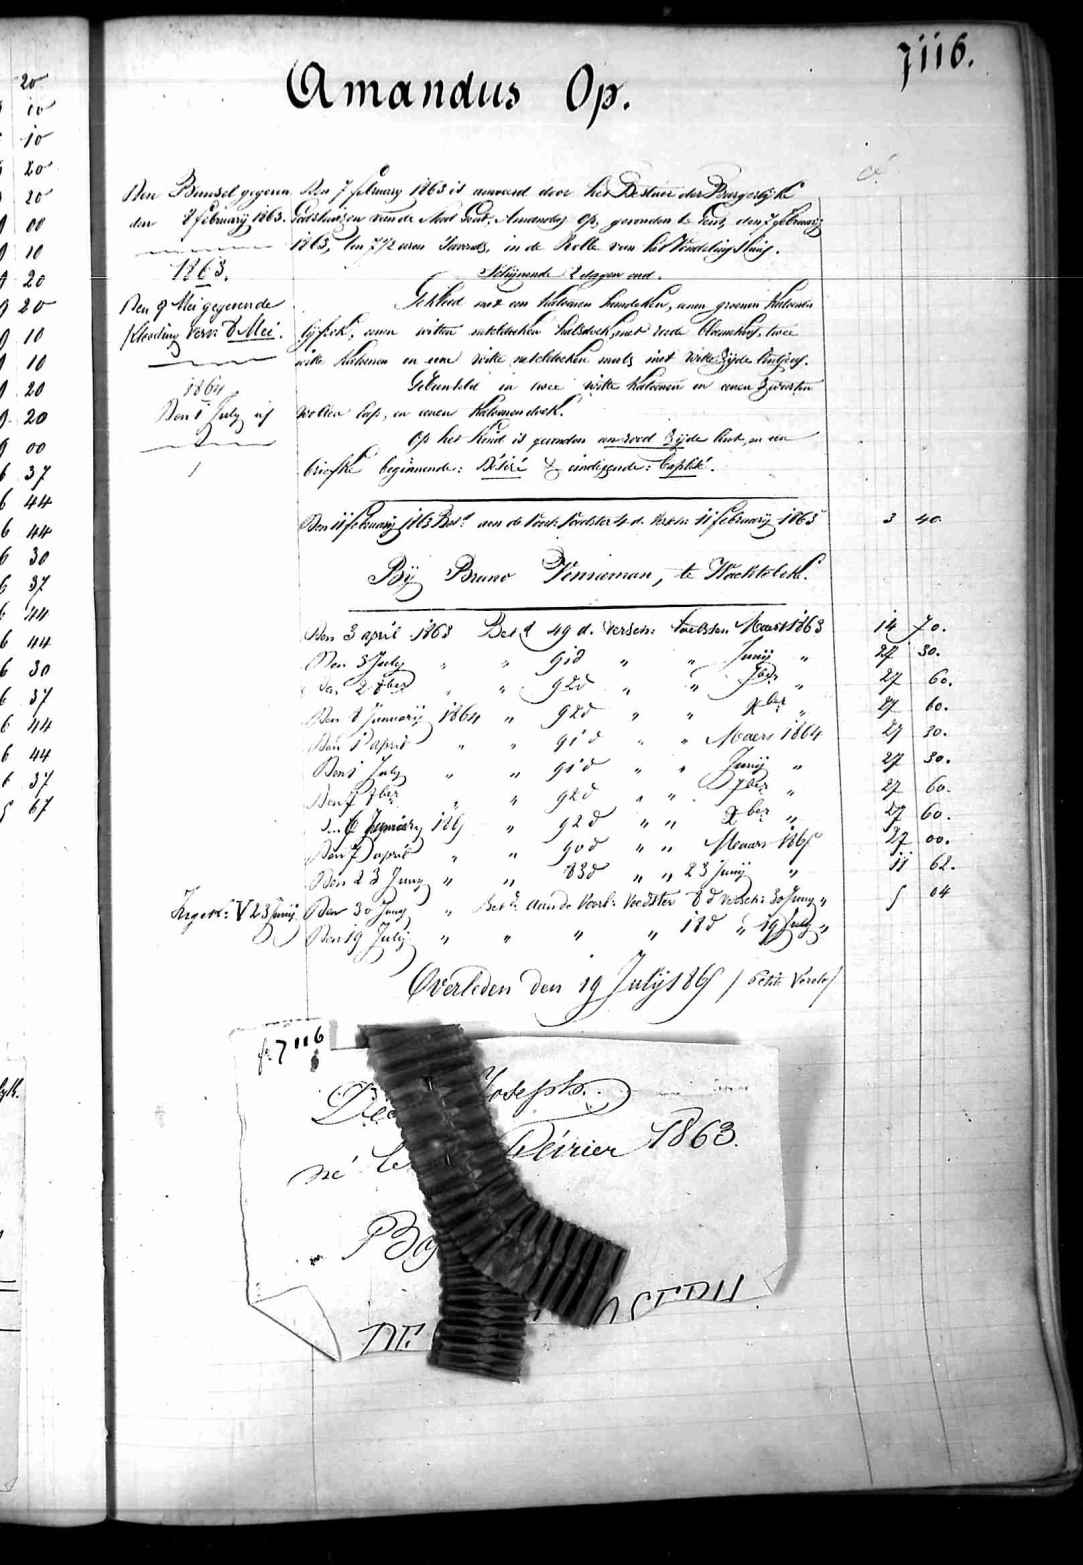 7116.
Amandus Op.
Den Bunsel gegeven
den 8 february 1863.
1863.
Den 9 Mei gegevende
Kleeding Vervn 8 Mei.
1864
Den 1 July id
Den 7 february 1863 is aanveerd door het Bestuer der Burgerlyke
Godshuizen van de Stad Gent, Amandus Op, gevonden te Gent, den 7 february
1863, ten 7 1/2 uren s'avonds, in de Rolle van het Vondelings Huis.
Schijnende 2 dagen oud.
Gekleed met een katoenen hemdeken, eenen groenen katoenen
lijfrok, eenen witten neteldoeken halsdoek met roode bloemkens, twee
witte katoenen en eene witte neteldoeken muts met witte zijde lintjes.
Gebunseld in twee witte katoenen en eenen zwarten
wollen lap, en eenen katoenen doek.
Op het kind is gevonden een rood zijde lint, en een
briefke beginnende: Désiré & eindigende: Baptiste.
Den 11 february 1863 Betd aan de Voork. Voedster 4 d. versch. 11 february 1863 3 40.
Bij Bruno Venneman, te Wachtebeke.
Den 3 april 1863 Betd 49 d. versch: laetsten Maert 1863 14 70.
Den 3 July " " 91d " " Junij " 27 30.
Den 2 8ber " " 92d " " 7ber " 27 60.
Den 8 Januarij 1864 " 92d " " Xber " 27 60.
Den 1 april " " 91d " " Maers 1864 27 30.
Den 1 July " " 91d " " Junij " 27 30.
Den 7 8ber " " 92d " " 7ber " 27 60.
Den 6 January 1865 " 92d " " Xber " 27 60.
Den 7 april " " 90d " " Maars 1865 27 00.
Den 23 Juny " " 83d " " 23 Junij " 11 62.
Ingek: V 23 Junij Den 30 Juny " Betd aan de Voork: Voedster 8d versch: 30 Juny " 5 04
Den 19 July " " " " 18d " 19 July "
Overleden den 19 July 1865
fo 7116
Joseph.
né le Février 1863.
DE JOSEPH
20
10
10
20
20
00
10
20
20
10
10
20
20
00
37
44
44
30
37
44
44
30
37
44
44
37
67